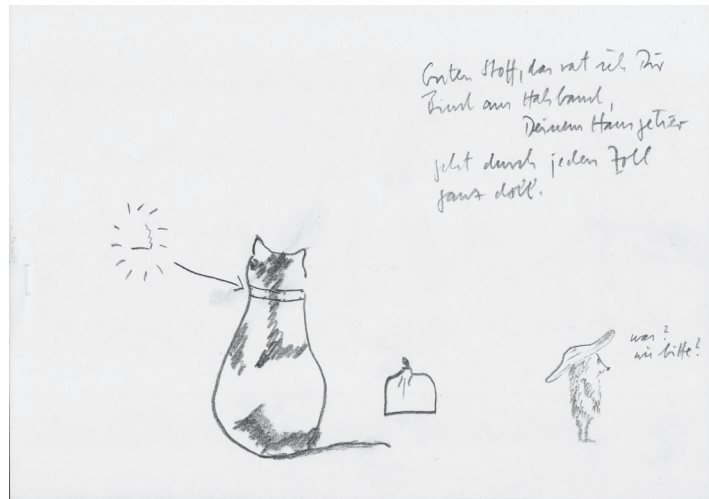 Guten Stoff, das rat ich Dir
Bind am Halsband,
Deinem Hausgetier
geht durch jeden Zoll
ganz doll.
was?
wie bitte?